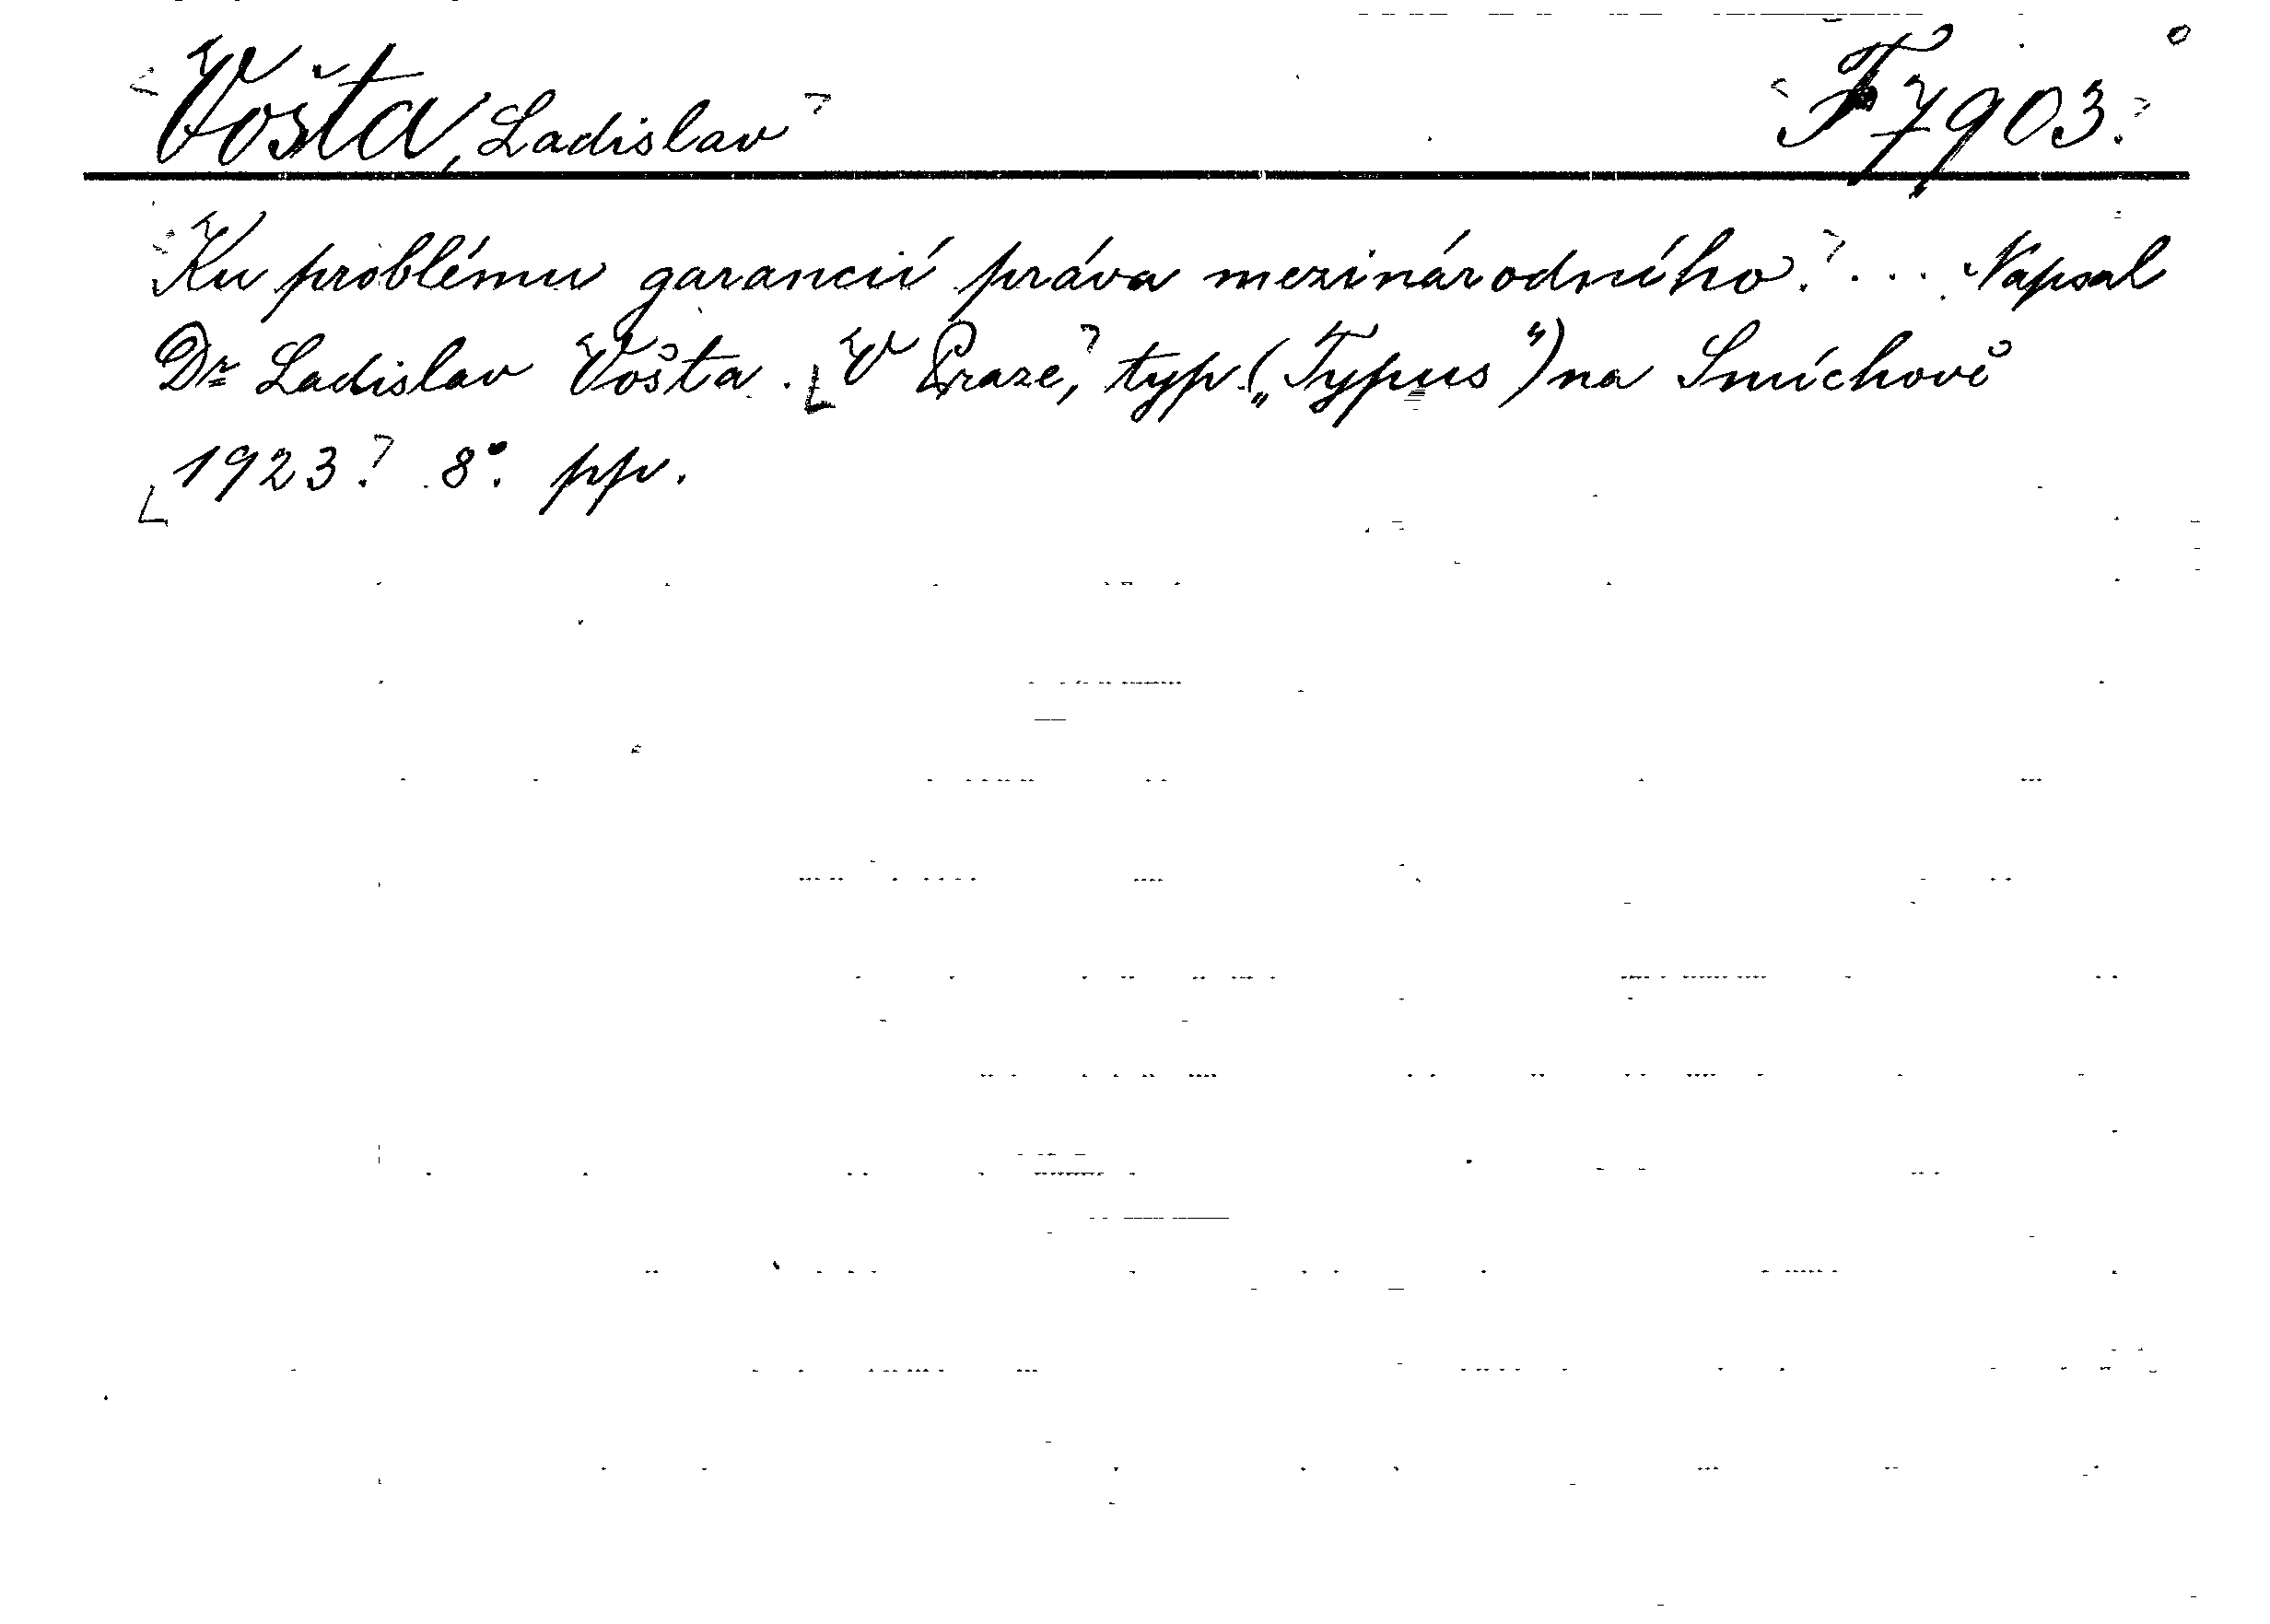 Vošta, Ladislav F 7903.
Ku problému garancií práva mezinárodního. ... Napsal
Dr Ladislav Vošta. V Praze, typ. („Typus") na Smíchově
1923. 8°. pp.